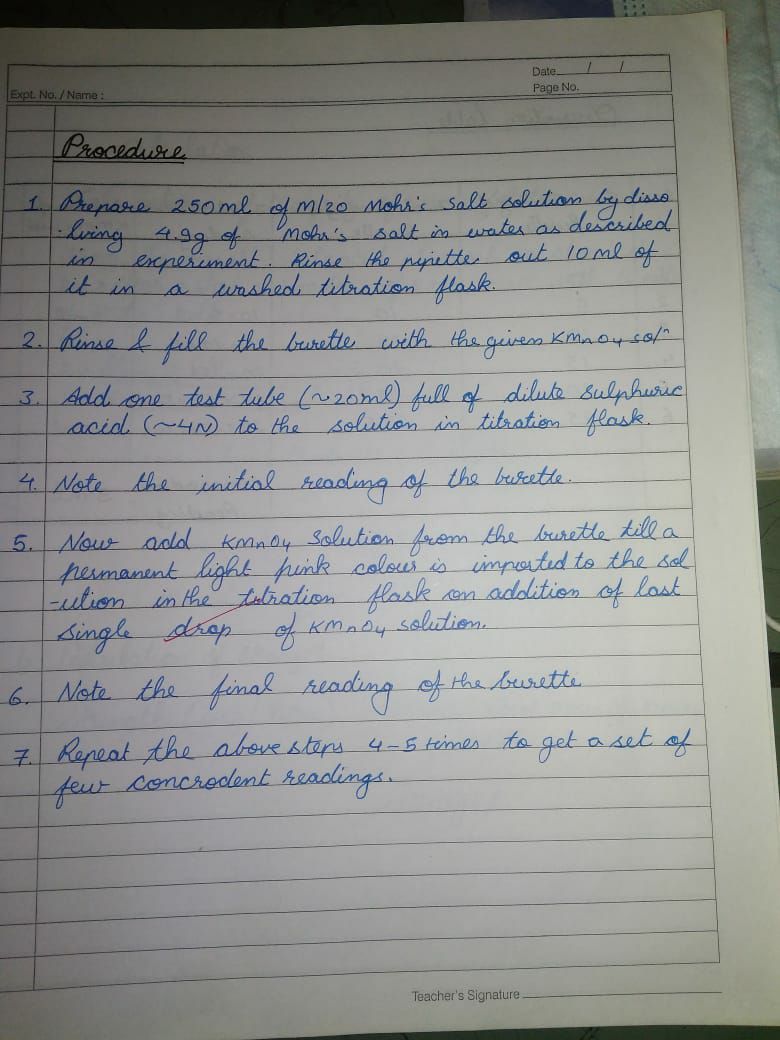 Date / /
Page No.
Expt. No. / Name :
Procedure
1. Prepare 250ml of M/20 Mohr's salt solution by disso
-lving 4.9g of Mohr's salt in water as described
in experiment. Rinse the pipette out 10 ml of
it in a washed titration flask.
2. Rinse & fill the burette with the given KMnO4 solⁿ
3. Add one test tube (~20ml) full of dilute sulphuric
acid (~4N) to the solution in titration flask.
4. Note the initial reading of the burette.
5. Now add KMnO4 solution from the burette till a
permanent light pink colour is imparted to the sol
-ution in the titration flask on addition of last
single drop of KMnO4 solution.
6. Note the final reading of the burette
7. Repeat the above steps 4-5 times to get a set of
few concrodent readings.
Teacher's Signature